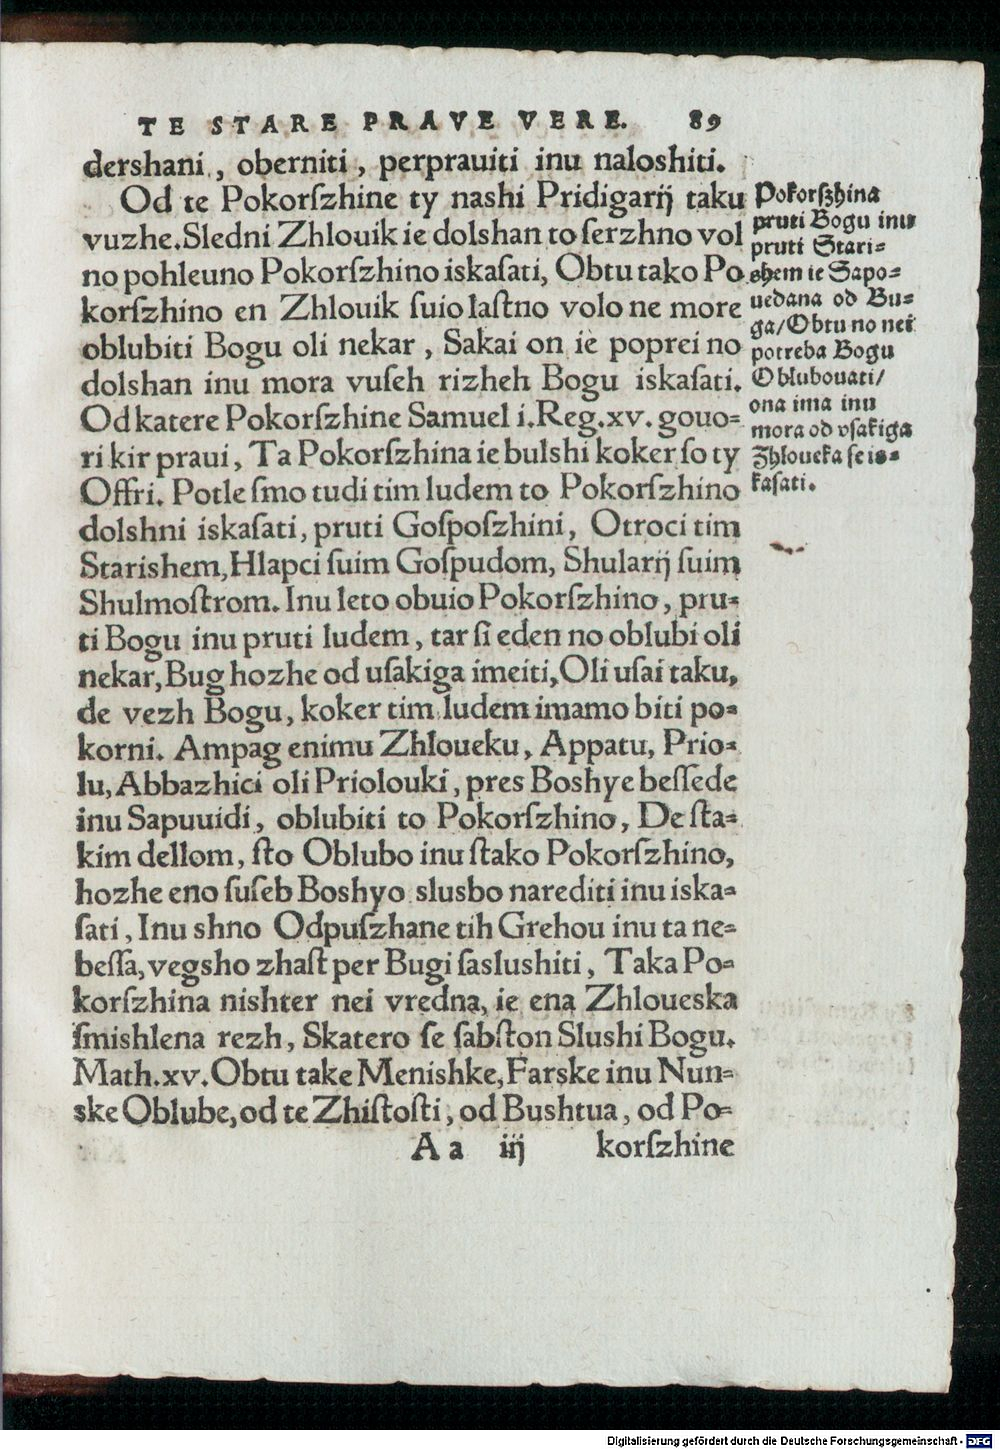 TE STARE PRAVE VERE. 89
dershani, oberniti, perprauiti inu naloshiti.
Od te Pokorſzhine ty nashi Pridigarij taku
vuzhe. Sledni Zhlouik ie dolshan to ſerzhno vol
no pohleuno Pokorſzhino iskaſati, Obtu tako Po
korſzhino en Zhlouik ſuio laſtno volo ne more
oblubiti Bogu oli nekar, Sakai on ie poprei no
dolshan inu mora vuſeh rizheh Bogu iskaſati.
Od katere Pokorſzhine Samuel i. Reg. xv. gouo-
ri kir praui, Ta Pokorſzhina ie bulshi koker ſo ty
Offri. Potle ſmo tudi tim ludem to Pokorſzhino
dolshni iskaſati, pruti Goſpoſzhini, Otroci tim
Starishem, Hlapci ſuim Goſpudom, Shularij ſuim
Shulmoſtrom. Inu leto obuio Pokorſzhino, pru-
ti Bogu inu pruti ludem, tar ſi eden no oblubi oli
nekar, Bug hozhe od uſakiga imeiti, Oli uſai taku,
de vezh Bogu, koker tim ludem imamo biti po-
korni. Ampag enimu Zhloueku, Appatu, Prio-
lu, Abbazhici oli Priolouki, pres Boshye beſſede
inu Sapuuidi, oblubiti to Pokorſzhino, De ſta-
kim dellom, ſto Oblubo inu ſtako Pokorſzhino,
hozhe eno ſuſeb Boshyo slusbo narediti inu iska-
ſati, Inu shno Odpuſzhane tih Grehou inu ta ne-
beſſa, vegsho zhaſt per Bugi ſaslushiti, Taka Po-
korſzhina nishter nei vredna, ie ena Zhloueska
ſmishlena rezh, Skatero ſe ſabſton Slushi Bogu.
Math. xv. Obtu take Menishke, Farske inu Nun-
ske Oblube, od te Zhiſtoſti, od Bushtua, od Po-
A a iij korſzhine
Pokorſzhina
pruti Bogu inu
pruti Stari-
shem ie Sapo-
uedana od Bu-
ga/ Obtu no nei
potreba Bogu
Oblubouati/
ona ima inu
mora od vſakiga
Zhloueka ſe is-
kaſati.
Digitalisierung gefördert durch die Deutsche Forschungsgemeinschaft - DFG